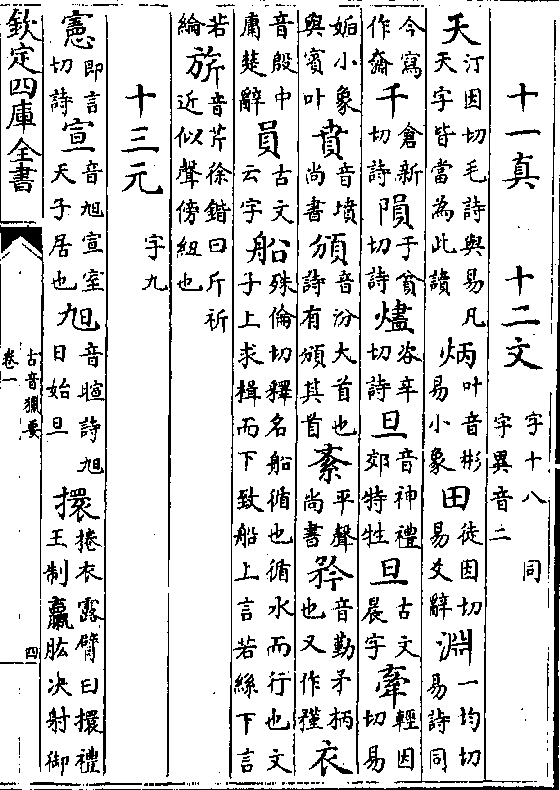 十一真　十二文　字十八　同字異音二
天汀因切毛詩與易凡天字皆當為此讀　炳叶音彬易小象　田徒因切易爻辭　淵一均切易詩同
今寫作齋　千倉新切詩　隕于貧切詩　燼咨辛切詩　旦音神禮郊特牲　旦古文晨字　牽輕因切易
姤小象與賓叶　賁音墳尚書　頒音汾大首也詩有頒其首　紊平聲尚書　矜音勤矛柄也又作䅖　衣
音殷中庸楚辭　員古文云字　船殊倫切釋名船循也循水而行也文子上求楫而下致船上言若絲下言
若綸　旂音芹徐鍇曰斤祈近似聲傍紐也
十三元　字九
憲即言切詩　宣音旭宣室天子居也　旭音暄詩旭日始旦　擐捲衣露臂曰擐禮王制臝肱决射御
欽定四庫全書
古音獵要
卷一
四